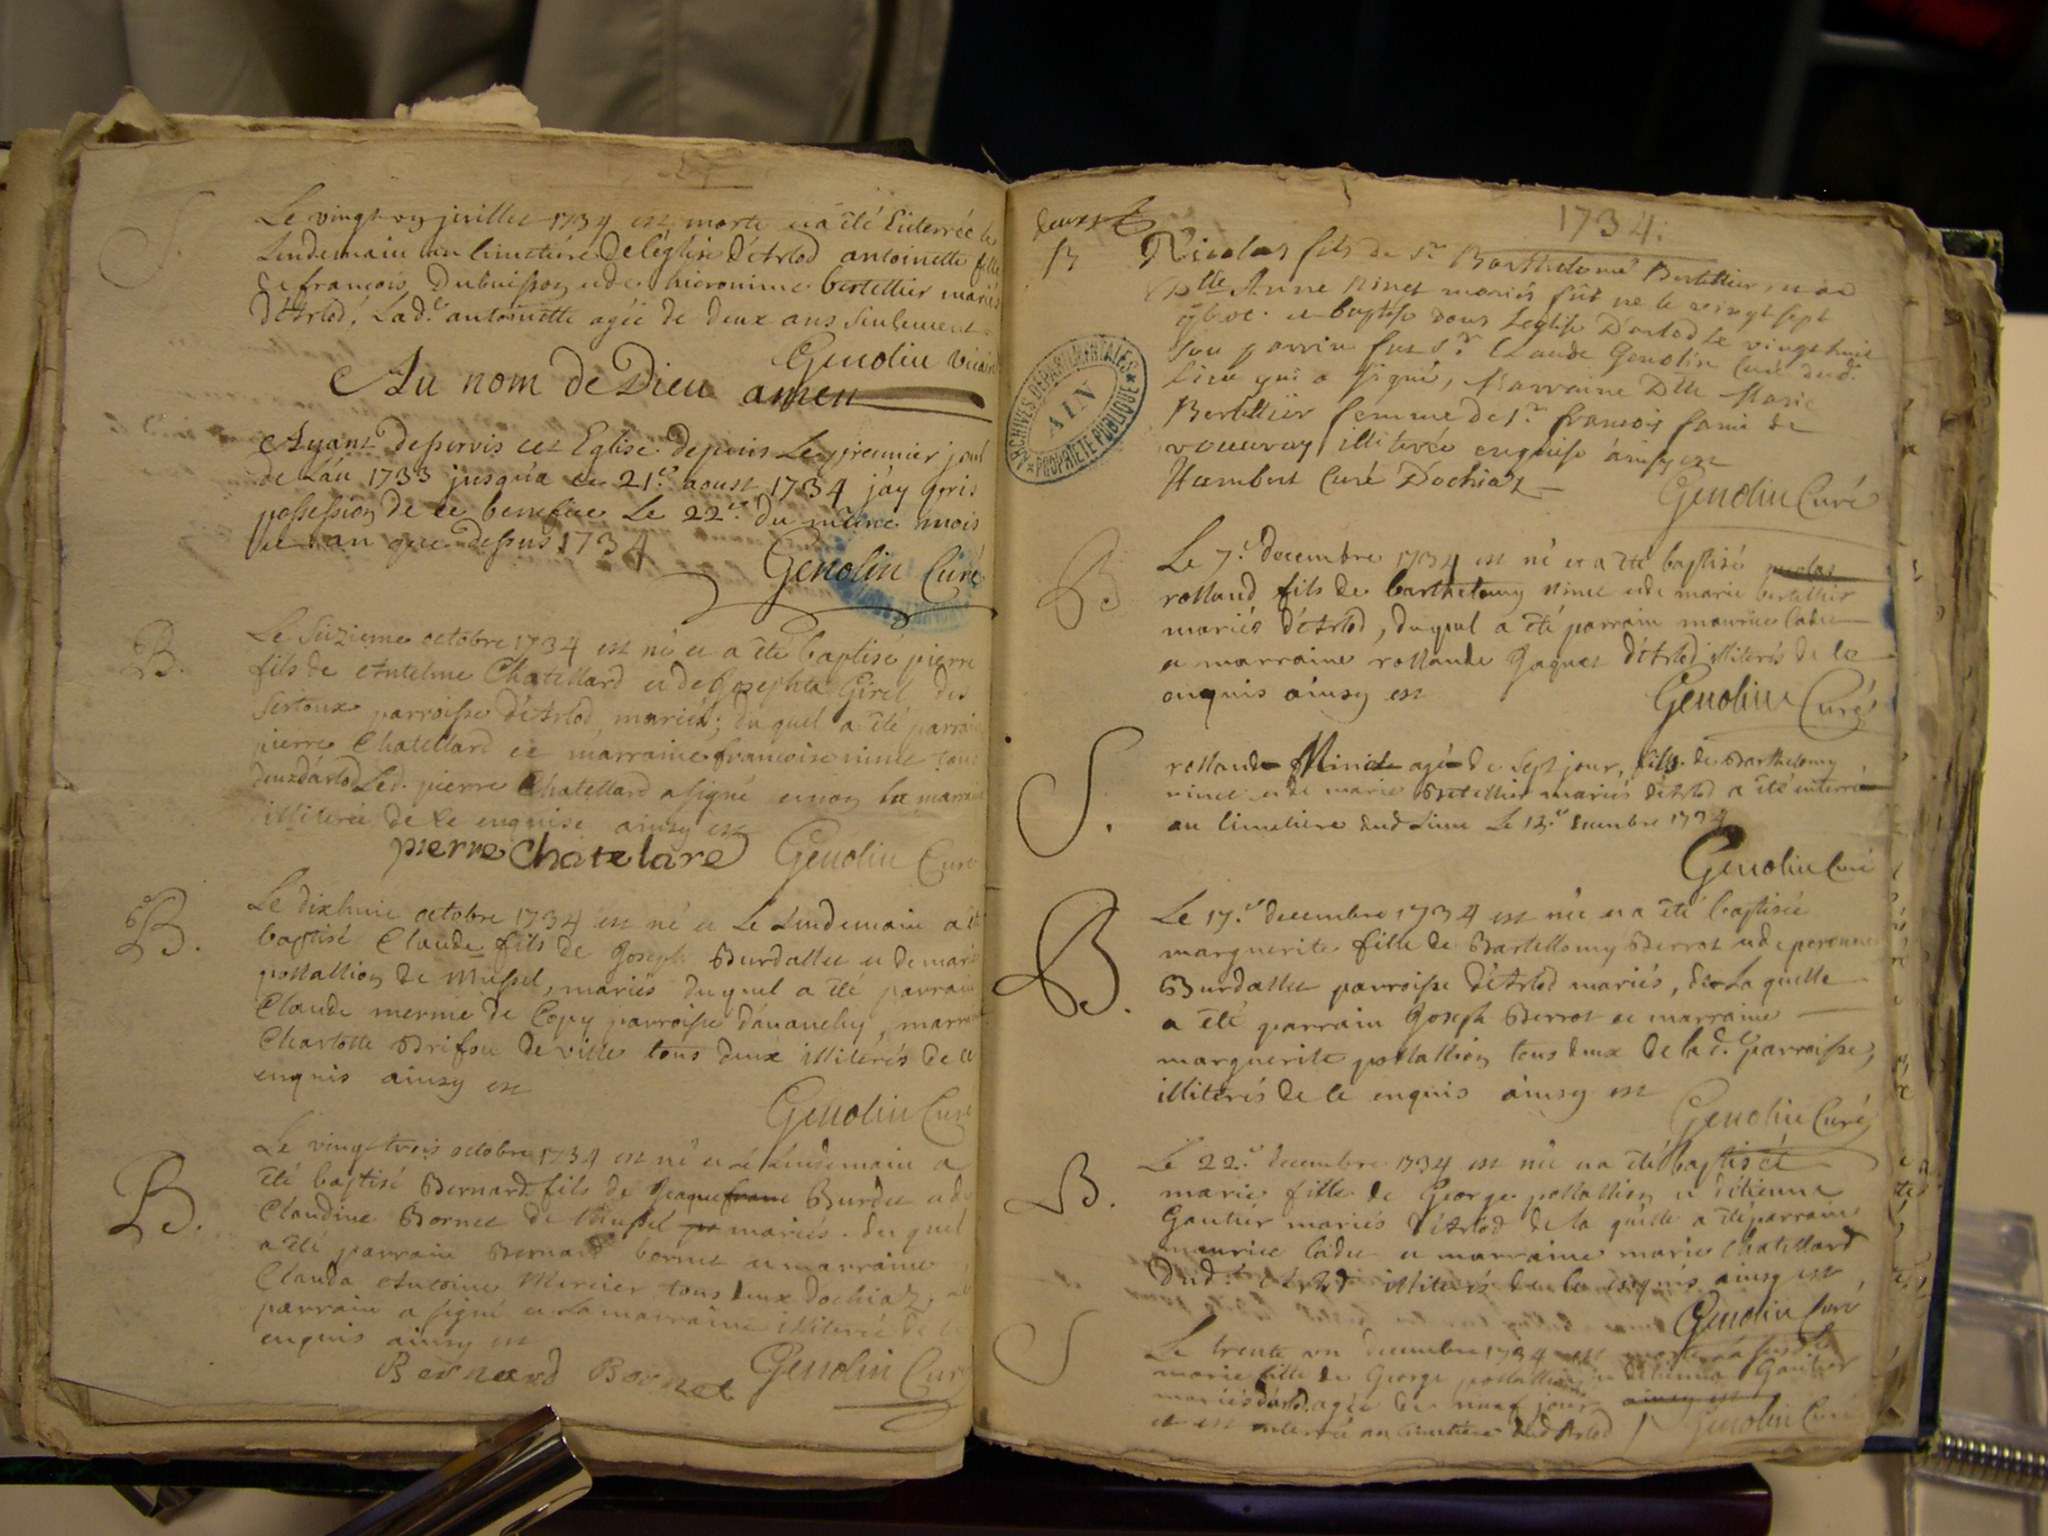 S.
Le vingt un juillet 1734 est morte et a été Enterrée le
Lendemain au Cimetiére De l'église d'Arlod antoinette fille
De françois Dubuisson et de hieronime bertettier mariés
d'Arlod, Lad.e antoinette agée de deux ans Seulement
Genolin Vicaire
Au nom de Dieu amen
Ayant Desservis cet Eglise depuis Le premier jour
de L'an 1733 jusqu'a ce 21.e aoust 1734 j'ay pris
possession de ce benefice Le 22.e du même mois
et an que Dessus 1734
Genolin Curé
B.
Le Sizieme octobre 1734 est né et a été baptisé pierre
fils de Antelme Chatellard et de Josephta Girel des
Sertoux parroisse d'Arlod mariés; du quel a été parrain
pierre Chatellard et marraine francoise ninet tous
deux d'Arlod Led. pierre Chatellard a signé et non la marraine
illiterée de Ce enquise ainsy est
pierre Chatelard Genolin Curé
B.
Le dixhuit octobre 1734 est né et Le Lendemain a été
baptisé Claude fils de Joseph Burdallet et de marie
postallion de Mussel, mariés du quel a été parrain
Claude merme de Copy parroisse d'auanchy, marraine
Charlotte Brifou de ville tous deux illitérés de ce
enquis ainsy est
Genolin Curé
B.
Le vingt trois octobre 1734 est né et Le Lendemain a
été baptisé Bernard fils de Jeaque franc Burdet et de
Claudine Bornet de Mussel mariés. du quel
a été parrain Bernard bornet et marraine
Clauda Antoine Mercier tous deux Dochiaz, le
parrain a signé et La marraine illiterée de ce
enquis ainsy est
Bernard Bornet Genolin Curé
1734.
B
Nicolas fils de Sr Barthelemé Bertettier, et de
Dlle Anne ninet mariés fût né le vingt sept
9bre. et baptisé dans Leglise D'arlod Le vingt huit
Son parrin fut Sr. Claude Genolin Curé dud.
lieu qui a signé, Marraine Dlle Marie
Bertettier femme de Sr françois famé de
vouuray illiterée enquise ainsy est
Humbert Curé Dochiaz
Genolin Curé
ARCHIVES DÉPARTEMENTALES
AIN
PROPRIÉTÉ PUBLIQUE
B
Le 7.e decembre 1734 est né et a été baptisé
rolland fils de barthelemy ninet et de marie bertettier
mariés d'Arlod, du quel a été parrain maurice Cadu
et marraine rollande Jaquet d'Arlod illiterés de ce
enquis ainsy est
Genolin Curé
S.
rolland Ninet agé de Sept jour, fils de Barthelemy
ninet et de marie Bertettier mariés d'Arlod a été enterré
au Cimetiere dud Lieu Le 13.e decembre 1734
Genolin Curé
B.
Le 17.e decembre 1734 est née et a été baptisée
marguerite fille de Bartellomy Berrot et de peronne
Burdallet parroisse d'Arlod mariés, de La quelle
a été parrain Joseph Berrot et marraine
marguerite postallion tous deux de lad.e parroisse,
illiterés de ce enquis ainsy est
Genolin Curé
B.
Le 22.e decembre 1734 est née et a été baptisée
marie fille de George postallion et d'etienna
Gautier mariés d'Arlod de la quelle a été parrain
maurice Cadu et marraine marie Chatellard
dud. Arlod illiterés de ce enquis ainsy est
Genolin Curé
S
Le trente un decembre 1734 est
marie fille de George postallion et d'etienna Gautier
mariés d'Arlod agée de neuf jour ainsy est
et est enterrée au Cimetiére dud Arlod Genolin Curé